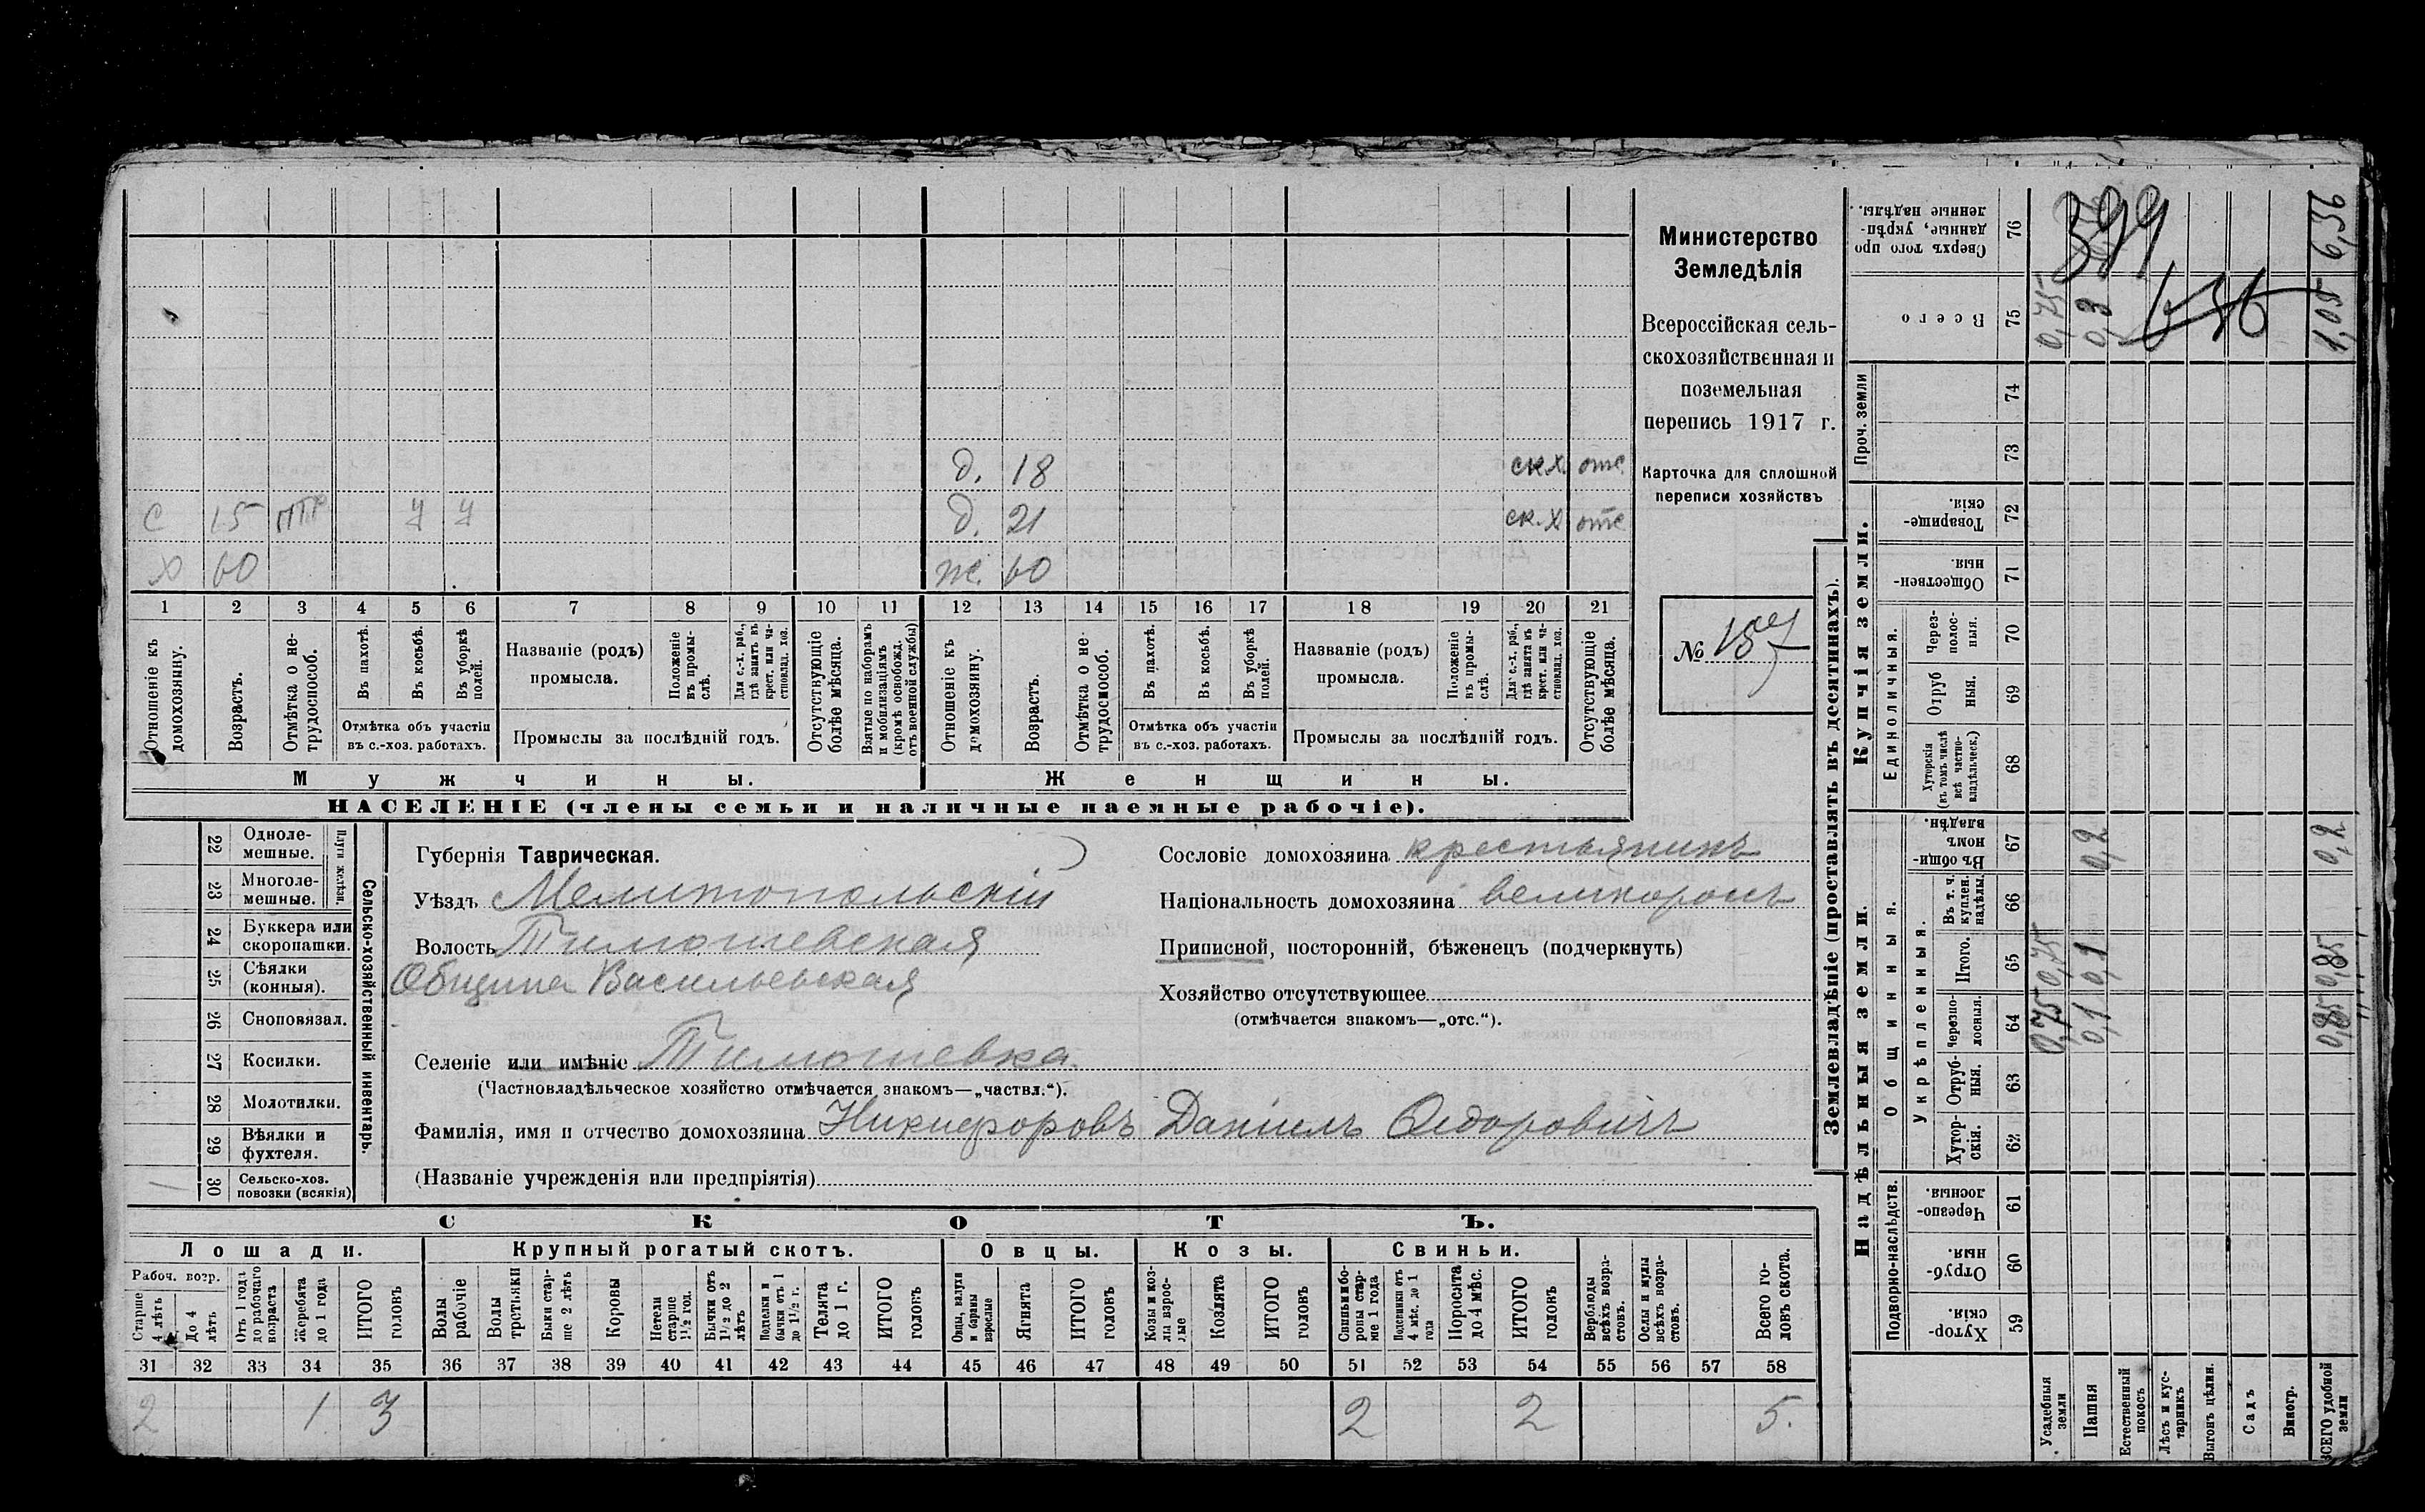 Министерство
Земледѣлія
Всероссійская сель-
скохозяйственная и
поземельная
перепись 1917 г.
Карточка для сплошной
переписи хозяйствъ
№ 157
д. 18 ск.х. отс
с 15 у у д. 21 ск.х отс
х 60 ж. 60
1 2 3 4 5 6 7 8 9 10 11 12 13 14 15 16 17 18 19 20 21
Отношеніе къ домохозяину.
Возрастъ.
Отмѣтка о не-трудоспособ.
Въ пахотѣ.
Въ косьбѣ.
Въ уборкѣ полей.
Отмѣтка объ участіи
въ с.-хоз. работахъ.
Названіе (родъ)
промысла.
Положеніе въ промы-слѣ.
Для с.-х. раб., гдѣ занятъ въ крест. или ча-стновлад. хоз.
Промыслы за послѣдній годъ.
Отсутствующіе болѣе мѣсяца.
Взятые по наборамъ и мобилизаціямъ (кромѣ освобожд. отъ военной службы)
Отношеніе къ домохозяину.
Возрастъ.
Отмѣтка о не-трудоспособ.
Въ пахотѣ.
Въ косьбѣ.
Въ уборкѣ полей.
Отмѣтка объ участіи
въ с.-хоз. работахъ.
Названіе (родъ)
промысла.
Положеніе въ промы-слѣ.
Для с.-х. раб., гдѣ занята въ крест. или ча-стновлад. хоз.
Промыслы за послѣдній годъ.
Отсутствующіе болѣе мѣсяца.
Мужчины. Женщины.
НАСЕЛЕНІЕ (члены семьи и наличные наемные рабочіе).
Сельско-хозяйственный инвентарь.
Плуги желѣзн.
22 Одноле-мешные.
23 Многоле-мешные.
24 Буккера или скоропашки.
25 Сѣялки (конныя).
26 Сноповязал.
27 Косилки.
28 Молотилки.
29 Вѣялки и фухтеля.
30 Сельско-хоз. повозки (всякія)
Губернія Таврическая.
Уѣздъ Мелитопольскій
Волость Тимошевская
Община Васильевская
Селеніе или имѣніе Тимошевка.
(Частновладѣльческое хозяйство отмѣчается знакомъ—„частвл.“).
Сословіе домохозяина крестьянинъ
Національность домохозяина великороссъ
Приписной, посторонній, бѣженецъ (подчеркнуть)
Хозяйство отсутствующее
(отмѣчается знакомъ—„отс.“).
Фамилія, имя и отчество домохозяина Никифоровъ Даніилъ Ѳедоровичъ
(Названіе учрежденія или предпріятія)
СКОТЪ.
Лошади. Крупный рогатый скотъ. Овцы. Козы. Свиньи.
Рабоч. возр.
Старше 4 лѣтъ
До 4 лѣтъ
Отъ 1 года до рабочаго возраста
Жеребята до 1 года
ИТОГО головъ
Волы рабочіе
Волы третьяки
Быки стар-ше 2 лѣтъ
Коровы
Нетели старше 1½ год.
Бычки отъ 1½ до 2 лѣтъ
Подтелки и бычки отъ 1 до 1½ г.
Телята до 1 г.
ИТОГО головъ
Овцы, валухи и бараны взрослые
Ягнята
ИТОГО головъ
Козы и коз-лы взрос-лые
Козлята
ИТОГО головъ
Свиньи и бо-ровы стар-ше 1 года
Подсвинки отъ 4 мѣс. до 1 года
Поросята до 4 мѣс.
ИТОГО головъ
Верблюды всѣхъ возра-стовъ.
Ослы и мулы всѣхъ возра-стовъ.
Всего го-ловъ скота.
31 32 33 34 35 36 37 38 39 40 41 42 43 44 45 46 47 48 49 50 51 52 53 54 55 56 57 58
2 1 3 2 2 5.
Землевладѣніе (проставлять въ десятинахъ).
Надѣльныя земли. Купчія земли. Проч. земли
Подворно-наслѣдств.
Общинныя.
Укрѣпленныя.
Единоличныя.
59 Хутор-скія.
60 Отруб-ныя.
61 Черезпо-лосныя.
62 Хутор-скія.
63 Отруб-ныя.
64 Черезпо-лосныя.
65 Итого.
66 Въ т. ч. куплен. надѣлы.
67 Въ общи-номъ владѣн.
68 Хуторскія (въ томъ числѣ всѣ частно-владѣльческ.)
69 Отруб ныя.
70 Через-полос-ныя.
71 Обществен-ныя.
72 Товарище-скія.
73
74
75 Всего
76 Сверхъ того про данные, укрѣп-ленные надѣлы.
Усадебныя земли 0,75 0,75 0,75
Пашня 0,1 0,1 0,2 0,3
Естественный покосъ
Лѣсъ и кус-тарникъ
Выгонъ цѣлин.
Садъ
Виногр.
ВСЕГО удобной земли 0,85 0,85 0,2 1,05 6,56
399